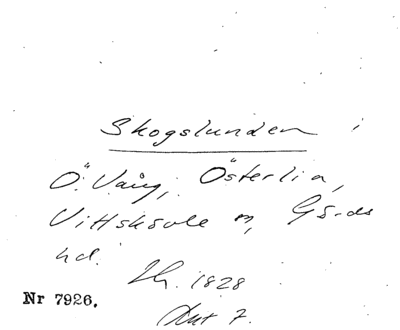 Skogslunden i
Ö. Vång, Österlia,
Vittskövle sn, Gärds
hd.
Lh. 1828
Akt 7.
Nr 7926.